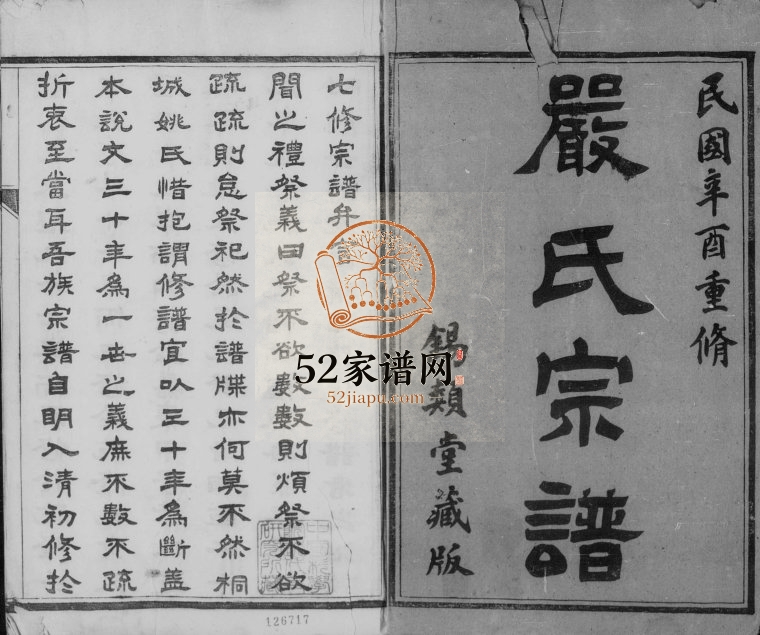 民國辛酉重脩
嚴氏宗譜
錫類堂藏版
七修宗譜弁
聞之禮祭義曰祭不欲數數則煩祭不欲
疏疏則怠祭祀然於譜牒亦何莫不然桐
城姚氏惜抱謂修譜宜以三十年為斷蓋
本說文三十年為一世之義庶不數不疏
折衷至當耳吾族宗譜自明入清初修於
52家谱网
52jiapu.com
126717